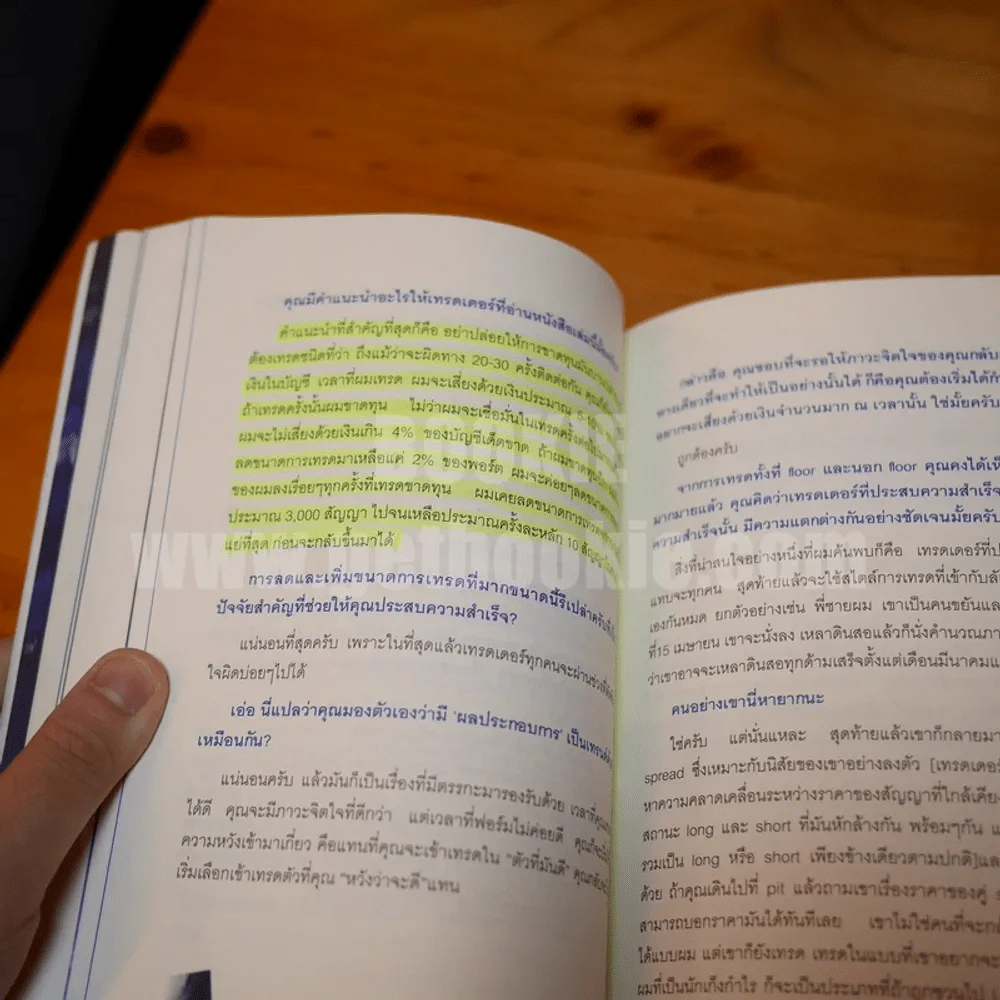 คุณมีคำแนะนำอะไรให้เทรดเดอร์ที่อ่านหนังสือเล่มนี้
คำแนะนำที่สำคัญที่สุดก็คือ อย่าปล่อยให้การขาดทุนมัน
ต้องเทรดชนิดที่ว่า ถึงแม้ว่าจะผิดทาง 20-30 ครั้งติดต่อกัน
เงินในบัญชี เวลาที่ผมเทรด ผมจะเสี่ยงด้วยเงินประมาณ 5-10%
ถ้าเทรดครั้งนั้นผมขาดทุน ไม่ว่าผมจะเชื่อมั่นในเทรดครั้งต่อไป
ผมจะไม่เสี่ยงด้วยเงินเกิน 4% ของบัญชีเด็ดขาด ถ้าผมขาดทุน
ลดขนาดการเทรดมาเหลือแค่ 2% ของพอร์ต ผมจะค่อยๆลดขนาด
ของผมลงเรื่อยๆทุกครั้งที่เทรดขาดทุน ผมเคยลดขนาดการเทรด
ประมาณ 3,000 สัญญา ไปจนเหลือประมาณครั้งละหลัก 10 สัญญา
แย่ที่สุด ก่อนจะกลับขึ้นมาได้
การลดและเพิ่มขนาดการเทรดที่มากขนาดนี้รึเปล่าครับที่
ปัจจัยสำคัญที่ช่วยให้คุณประสบความสำเร็จ?
แน่นอนที่สุดครับ เพราะในที่สุดแล้วเทรดเดอร์ทุกคนจะผ่านช่วงที่
ใจผิดบ่อยๆไปได้
เอ่อ นี่แปลว่าคุณมองตัวเองว่ามี 'ผลประกอบการ' เป็นเทรนด์
เหมือนกัน?
แน่นอนครับ แล้วมันก็เป็นเรื่องที่มีตรรกะมารองรับด้วย เวลาที่คุณ
ได้ดี คุณจะมีภาวะจิตใจที่ดีกว่า แต่เวลาที่ฟอร์มไม่ค่อยดี คุณก็จะ
ความหวังเข้ามาเกี่ยว คือแทนที่คุณจะเข้าเทรดใน "ตัวที่มันดี" คุณกลับ
เริ่มเลือกเข้าเทรดตัวที่คุณ "หวังว่าจะดี" แทน
กล่าวคือ คุณชอบที่จะรอให้ภาวะจิตใจของคุณกลับ
ทางเดียวที่จะทำให้เป็นอย่างนั้นได้ ก็คือคุณต้องเริ่มได้กำ
อยากจะเสี่ยงด้วยเงินจำนวนมาก ณ เวลานั้น ใช่มั้ยครับ
ถูกต้องครับ
จากการเทรดทั้งที่ floor และนอก floor คุณคงได้เห็
มากมายแล้ว คุณคิดว่าเทรดเดอร์ที่ประสบความสำเร็จ
ความสำเร็จนั้น มีความแตกต่างกันอย่างชัดเจนมั้ยครับ
สิ่งที่น่าสนใจอย่างหนึ่งที่ผมค้นพบก็คือ เทรดเดอร์ที่ป
แทบจะทุกคน สุดท้ายแล้วจะใช้สไตล์การเทรดที่เข้ากับลั
เองกันหมด ยกตัวอย่างเช่น พี่ชายผม เขาเป็นคนขยันและ
ที่15 เมษายน เขาจะนั่งลง เหลาดินสอแล้วก็นั่งคำนวณภา
ว่าเขาอาจจะเหลาดินสอทุกด้ามเสร็จตั้งแต่เดือนมีนาคมแ
คนอย่างเขานี่หายากนะ
ใช่ครับ แต่นั่นแหละ สุดท้ายแล้วเขาก็กลายมา
spread ซึ่งเหมาะกับนิสัยของเขาอย่างลงตัว [เทรดเดอร์
หาความคลาดเคลื่อนระหว่างราคาของสัญญาที่ใกล้เคียง
สถานะ long และ short ที่มันหักล้างกัน พร้อมๆกัน แ
รวมเป็น long หรือ short เพียงข้างเดียวตามปกติ]และ
ด้วย ถ้าคุณเดินไปที่ pit แล้วถามเขาเรื่องราคาของคู่ s
สามารถบอกราคามันได้ทันทีเลย เขาไม่ใช่คนที่จะก
ได้แบบผม แต่เขาก็ยังเทรด เทรดในแบบที่เขาอยากจะ
ผมที่เป็นนักเก็งกำไร ก็จะเป็นประเภทที่
www.getbookie.com